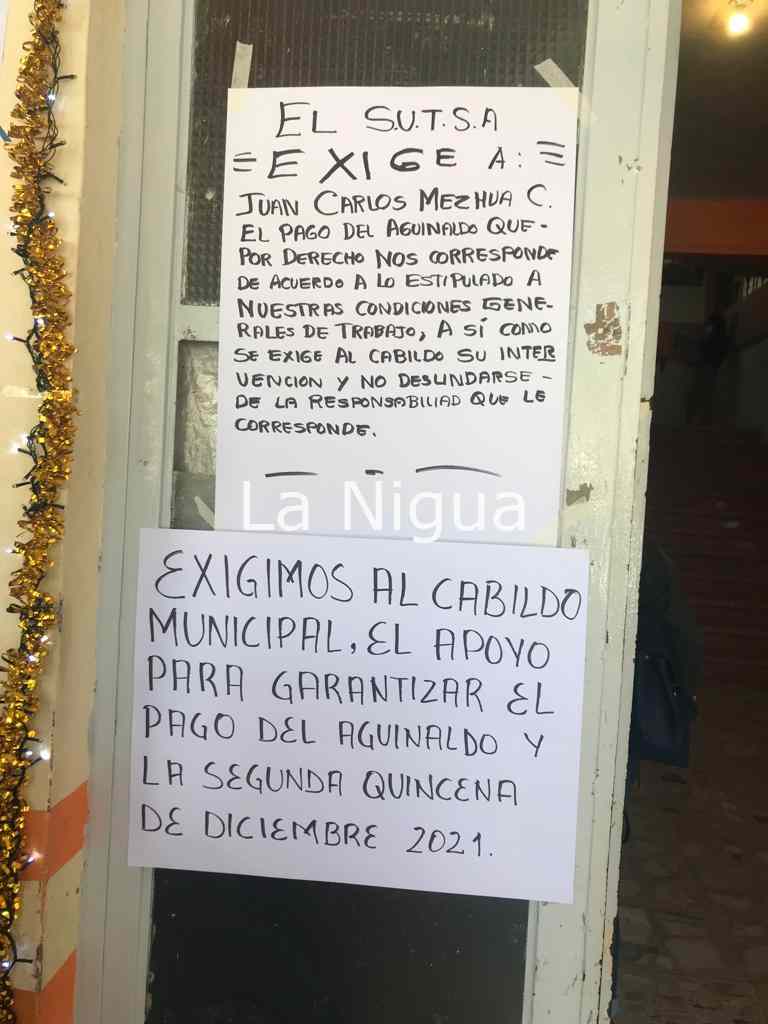 EL S.U.T.S.A
=EXIGE A:=
JUAN CARLOS MEZHUA C.
EL PAGO DEL AGUINALDO QUE-
POR DERECHO NOS CORRESPONDE
DE ACUERDO A LO ESTIPULADO A
NUESTRAS CONDICIONES GENE-
RALES DE TRABAJO, A SÍ COMO
SE EXIGE AL CABILDO SU INTER
VENCION Y NO DESLINDARSE-
DE LA RESPONSABILIAD QUE LE
CORRESPONDE.
La Nigua
EXIGIMOS AL CABILDO
MUNICIPAL, EL APOYO
PARA GARANTIZAR EL
PAGO DEL AGUINALDO Y
LA SEGUNDA QUINCENA
DE DICIEMBRE 2021.